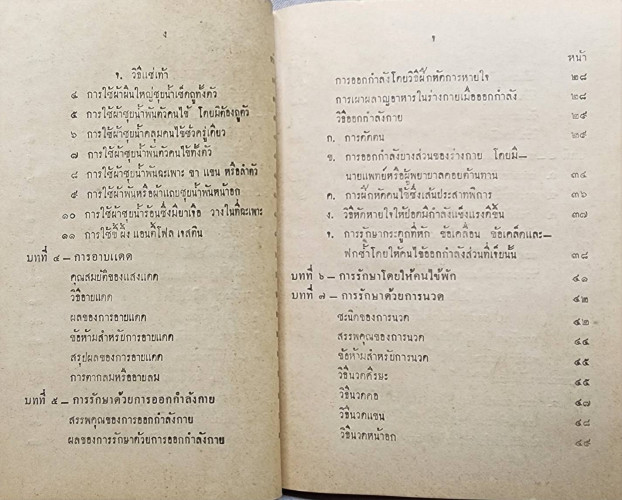 ง
ข. วิธีแช่เท้า
๔ การใช้ผ้าผืนใหญ่ชุบน้ำเช็ดถูทั้งตัว
๕ การใช้ผ้าชุบน้ำพันตัวคนไข้ โดยมิต้องถูตัว
๖ การใช้ผ้าชุบน้ำคลุมคนไข้ชั่วครู่เดียว
๗ การใช้ผ้าชุบน้ำพันตัวคนไข้ทั้งตัว
๘ การใช้ผ้าชุบน้ำพันฉะเพาะ ขา แขน หรือลำตัว
๙ การใช้ผ้าพันหรือผ้าแถบชุบน้ำพันหน้าอก
๑๐ การใช้ผ้าชุบน้ำร้อนซึ่งมียาเจือ วางในที่ฉะเพาะ
๑๑ การใช้ขี้ผึ้ง แอนตี้โฟล เจสติน
บทที่ ๔ — การอาบแดด
คุณสมบัติของแสงแดด
วิธีอายแดด
ผลของการอายแดด
ข้อห้ามสำหรับการอายแดด
สรุปผลของการอายแดด
การตากลมหรืออายลม
บทที่ ๕ — การรักษาด้วยการออกกำลังกาย
สรรพคุณของการออกกำลังกาย
ผลของการรักษาด้วยการออกกำลังกาย
หน้า
การออกกำลังโดยวิธีฝึกหัดการหายใจ ๒๘
การเผาผลาญอาหารในร่างกายเมื่อออกกำลัง ๒๘
วิธีออกกำลังกาย ๒๙
ก. การดัดตน ๒๙
ข. การออกกำลังบางส่วนของร่างกาย โดยมี—
นายแพทย์หรือผู้พยาบาลคอยต้านทาน ๓๔
ค. การฝึกหัดคนไข้ซึ่งเส้นประสาทพิการ ๓๖
ง. วิธีหัดหายใจให้ปอดมีกำลังแข็งแรงดีขึ้น ๓๗
จ. การรักษากระดูกที่หัก ข้อเคลื่อน ข้อเคล็ดและ—
ฟกช้ำ โดยให้คนไข้ออกกำลังส่วนที่เจ็บนั้น ๓๘
บทที่ ๖ — การรักษาโดยให้คนไข้พัก ๔๑
บทที่ ๗ — การรักษาด้วยการนวด ๔๒
ชะนิดของการนวด ๔๒
สรรพคุณของการนวด ๔๔
ข้อห้ามสำหรับการนวด ๔๕
วิธีนวดศีรษะ ๔๕
วิธีนวดคอ ๔๗
วิธีนวดแขน ๔๘
วิธีนวดหน้าอก ๔๙